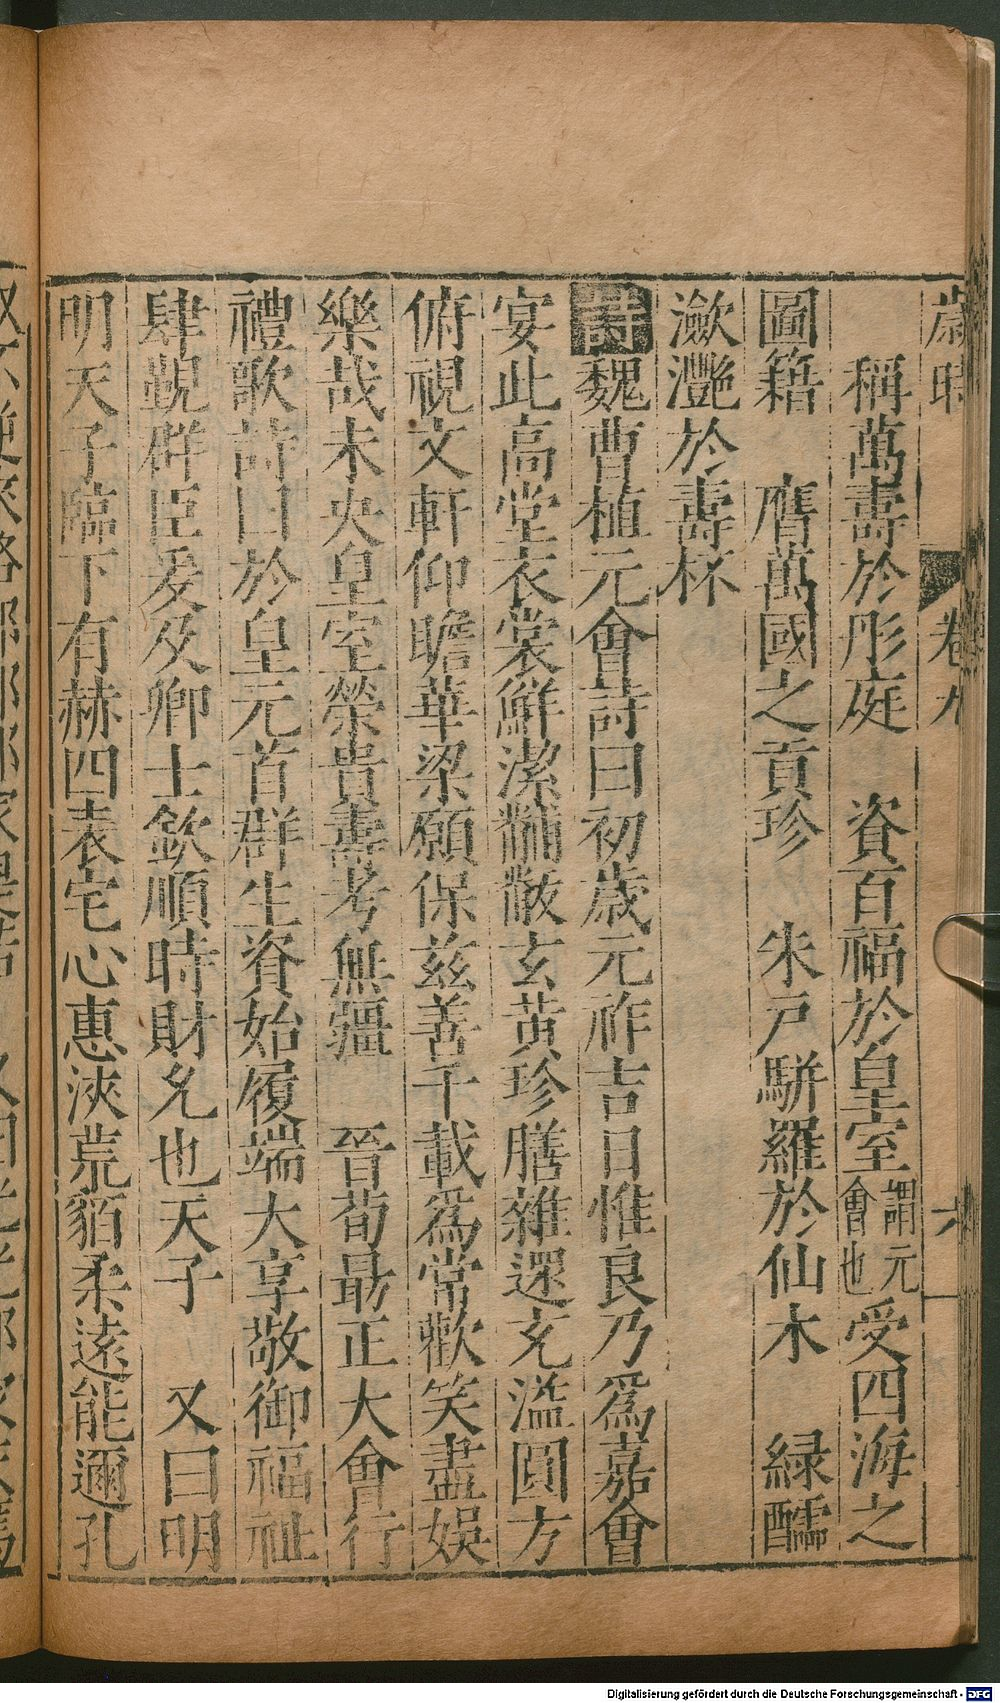 歲時 卷九 六
稱萬壽於彤庭 資百福於皇室謂元會也受四海之
圖籍 膺萬國之貢珍 朱戸駢羅於仙木 緑醹
瀲灧於壽杯
詩魏曹植元會詩曰初歲元祚吉日惟良乃爲嘉會
宴此高堂衣裳鮮潔黼黻玄黄珍膳雜還充溢圓方
俯視文軒仰瞻華梁願保兹善千載爲常歡笑盡娱
樂哉未央皇室榮貴壽考無疆 晉荀朂正大會行
禮歌詩曰於皇元首群生資始履端大享敬御福祉
肆覲群臣爰及卿士欽順時財允也天子 又曰明
明天子臨下有赫四表宅心惠浹荒貊柔遠能邇孔
Digitalisierung gefördert durch die Deutsche Forschungsgemeinschaft - DFG